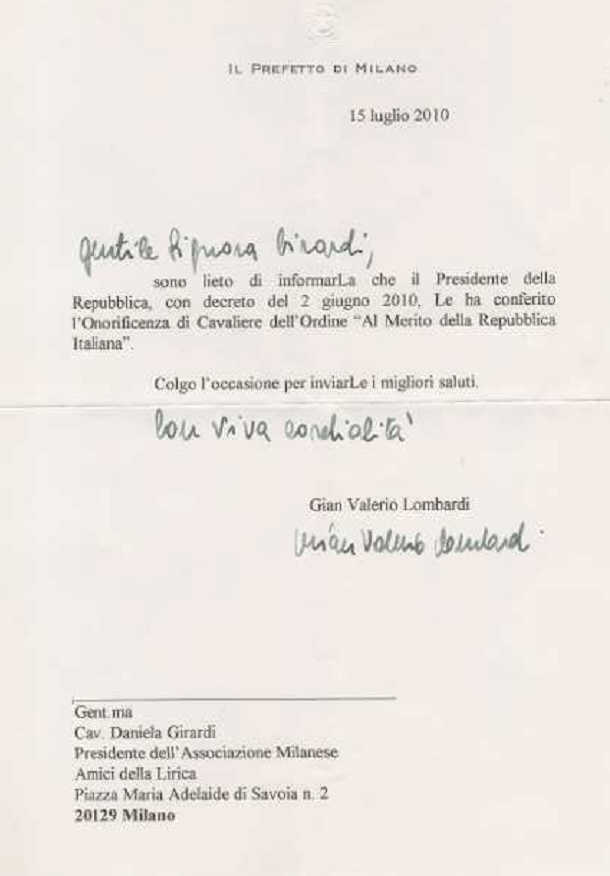 IL PREFETTO DI MILANO
15 luglio 2010
gentile Signora Girardi,
sono lieto di informarLa che il Presidente della
Repubblica, con decreto del 2 giugno 2010, Le ha conferito
l'Onorificenza di Cavaliere dell'Ordine "Al Merito della Repubblica
Italiana".
Colgo l'occasione per inviarLe i migliori saluti.
Con viva cordialità
Gian Valerio Lombardi
Gian Valerio Lombardi
Gent.ma
Cav. Daniela Girardi
Presidente dell'Associazione Milanese
Amici della Lirica
Piazza Maria Adelaide di Savoia n. 2
20129 Milano